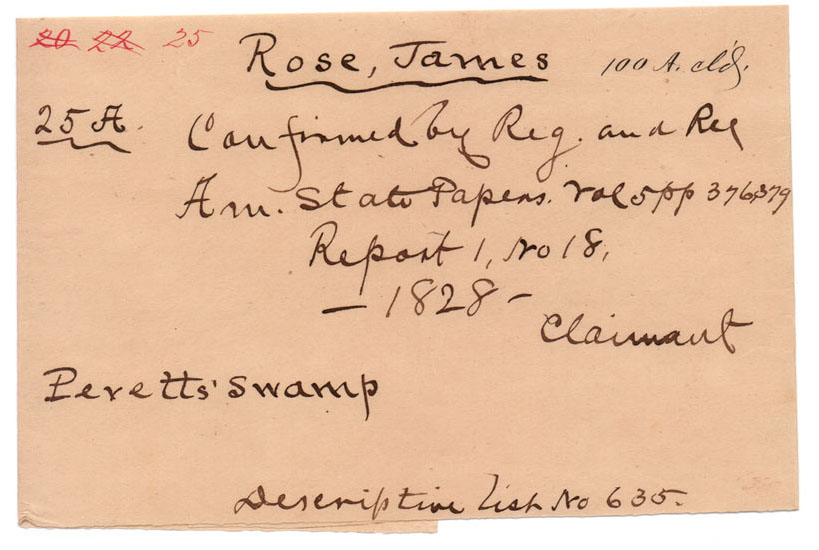 20 22 25
Rose, James 100 A. cld.
25 A. Confirmed by Reg. and Rec
Am. State Papers. Vol 5 pp 376,379
Report 1, No 18,
— 1828 —
Claimant
Peretts' Swamp
Descriptive list No 635.